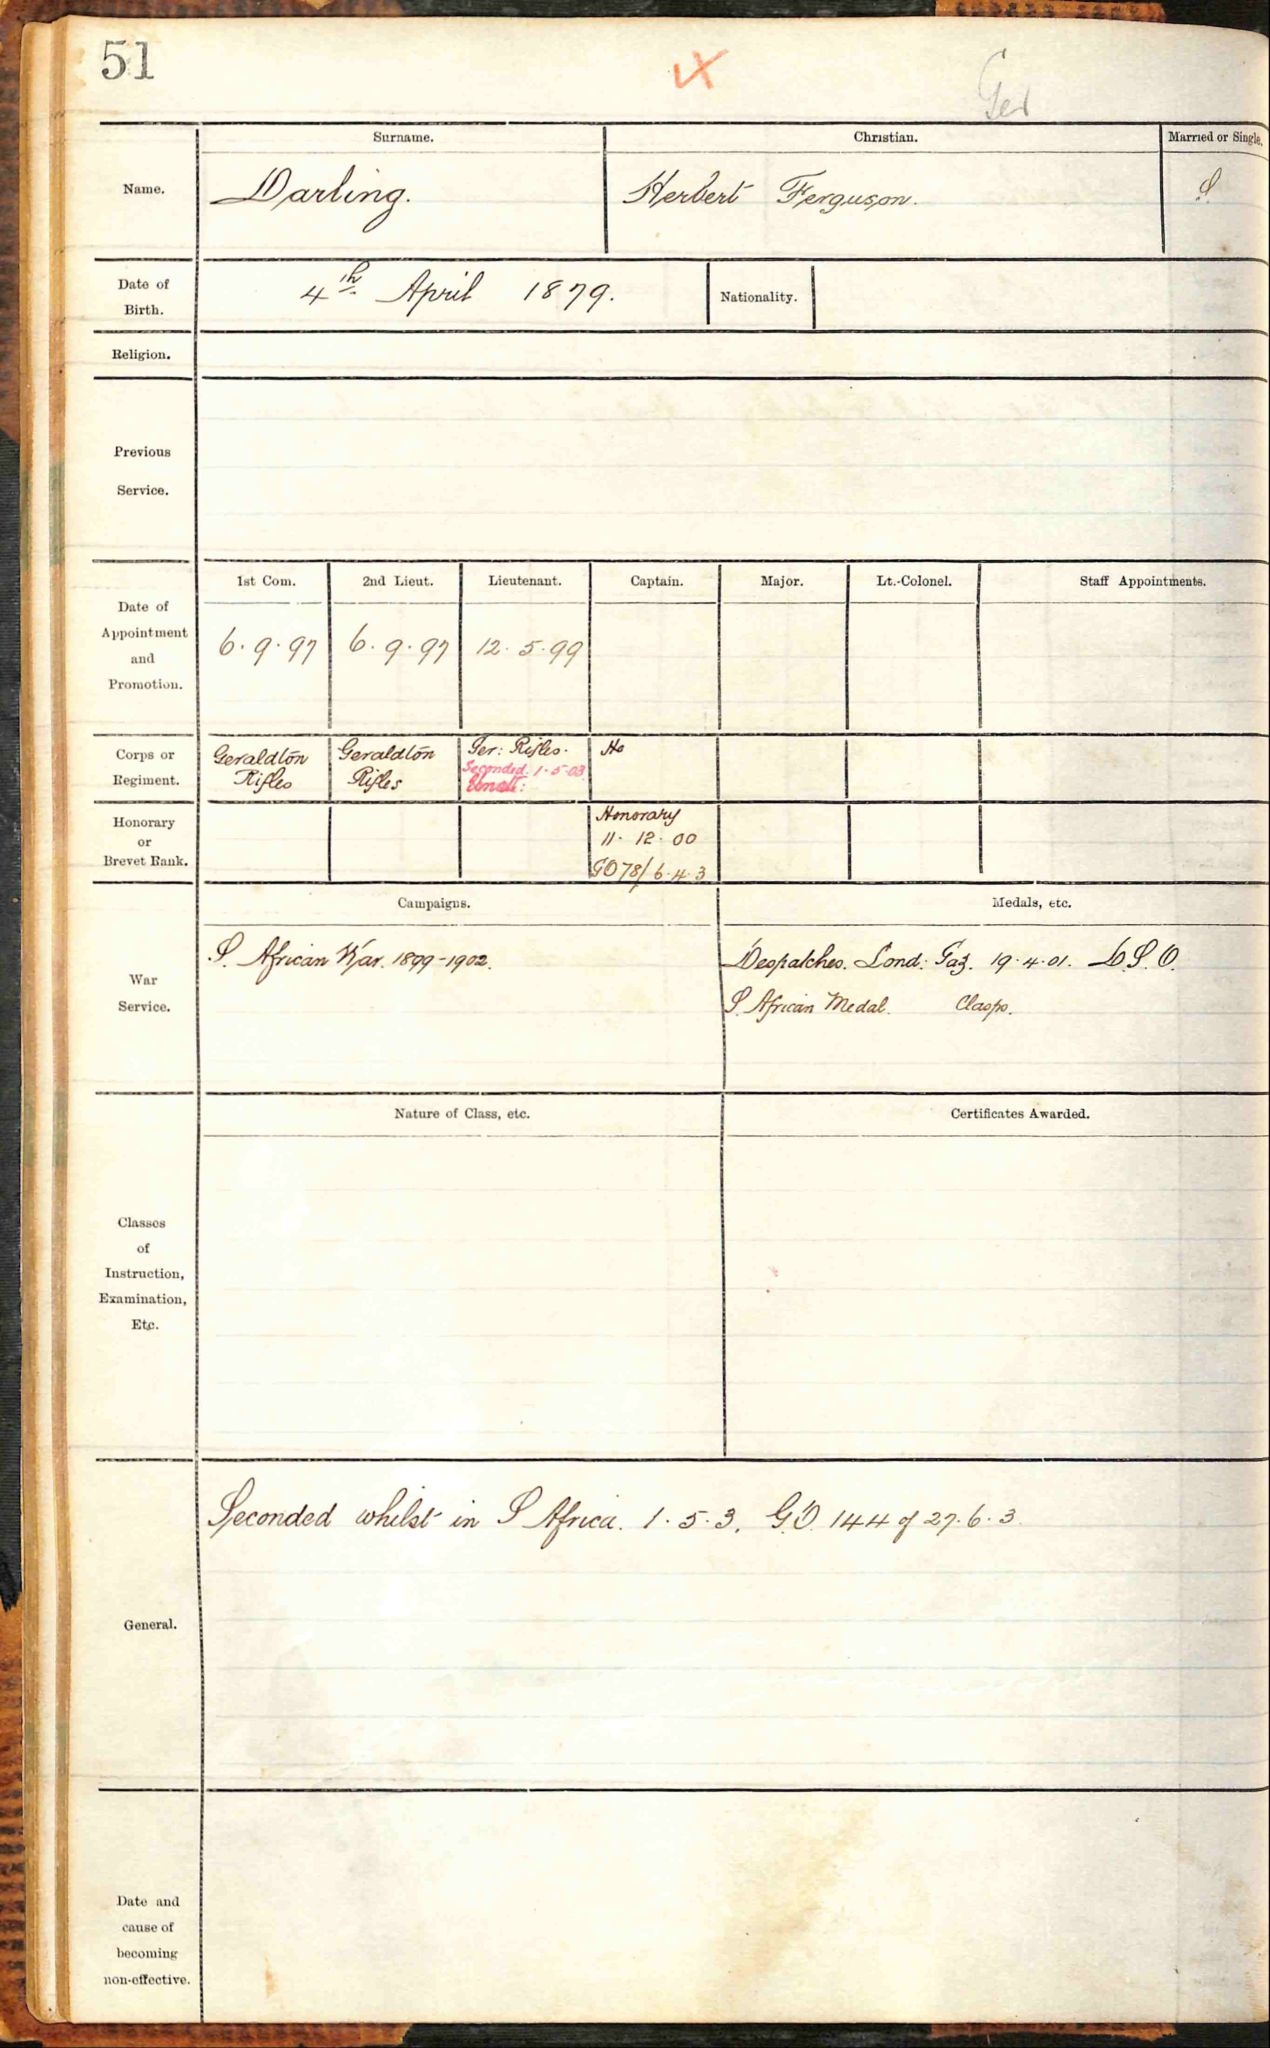 51
Ger
Surname. Christian. Married or Single.
Name. Darling. Herbert Ferguson. S.
Date of Birth. 4th April 1879. Nationality.
Religion.
Previous
Service.
1st Com. 2nd Lieut. Lieutenant. Captain. Major. Lt.-Colonel. Staff Appointments.
Date of
Appointment
and
Promotion.
6.9.97 6.9.97 12.5.99
Corps or
Regiment.
Geraldton
Rifles
Geraldton
Rifles
Ger: Rifles.
Seconded. 1.5.03
Ho
Honorary
or
Brevet Rank.
Honorary
11.12.00
GO 78/6.4.3
Campaigns. Medals, etc.
War
Service.
S. African War. 1899-1902.
Despatches. Lond: Gaz. 19.4.01. D.S.O.
S. African Medal. Clasps.
Nature of Class, etc. Certificates Awarded.
Classes
of
Instruction,
Examination,
Etc.
General.
Seconded whilst in S Africa. 1.5.3. G.O. 144 of 27.6.3.
Date and
cause of
becoming
non-effective.